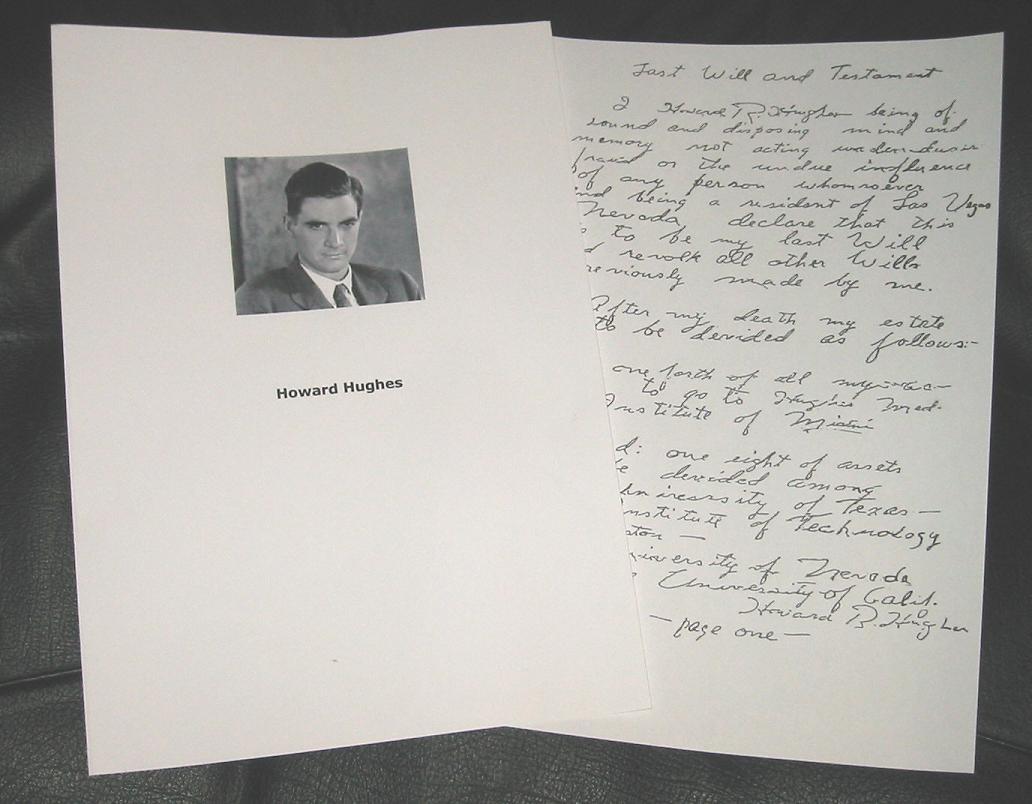 Howard Hughes
Last Will and Testament
I Howard R. Hughes being of
sound and disposing mind and
memory not acting under duress
fraud or the undue influence
of any person whomsoever
nd being a resident of Las Vegas
Nevada declare that this
s to be my last Will
d revolk all other Wills
reviously made by me.
After my death my estate
to be devided as follows:-
one forth of all my
to go to Hughes Med.
Institute of Miami
d: one eight of assets
e devided among
University of Texas -
nstitute of Technology
ston -
niversity of Nevada
University of Calif.
Howard R. Hughes
- page one -